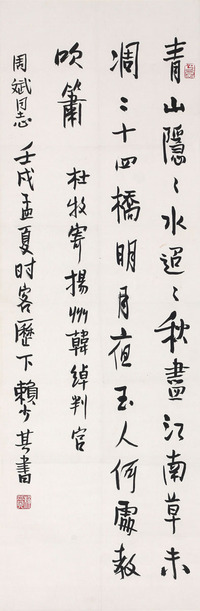 青山隱〻水迢〻秋盡江南草未
凋二十四橋明月夜玉人何處教
吹簫 杜牧寄揚州韓綽判官
周斌同志 壬戌孟夏时客歷下賴少其書